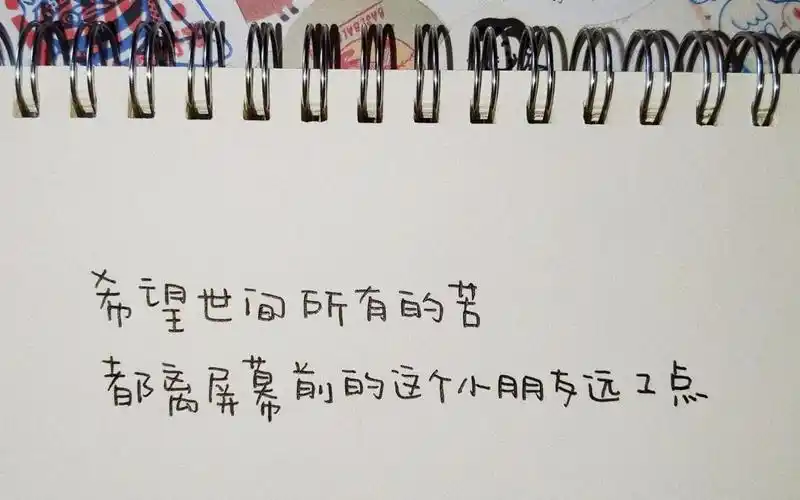 BASEBAL
希望世间所有的苦
都离屏幕前的这个小朋友远工点